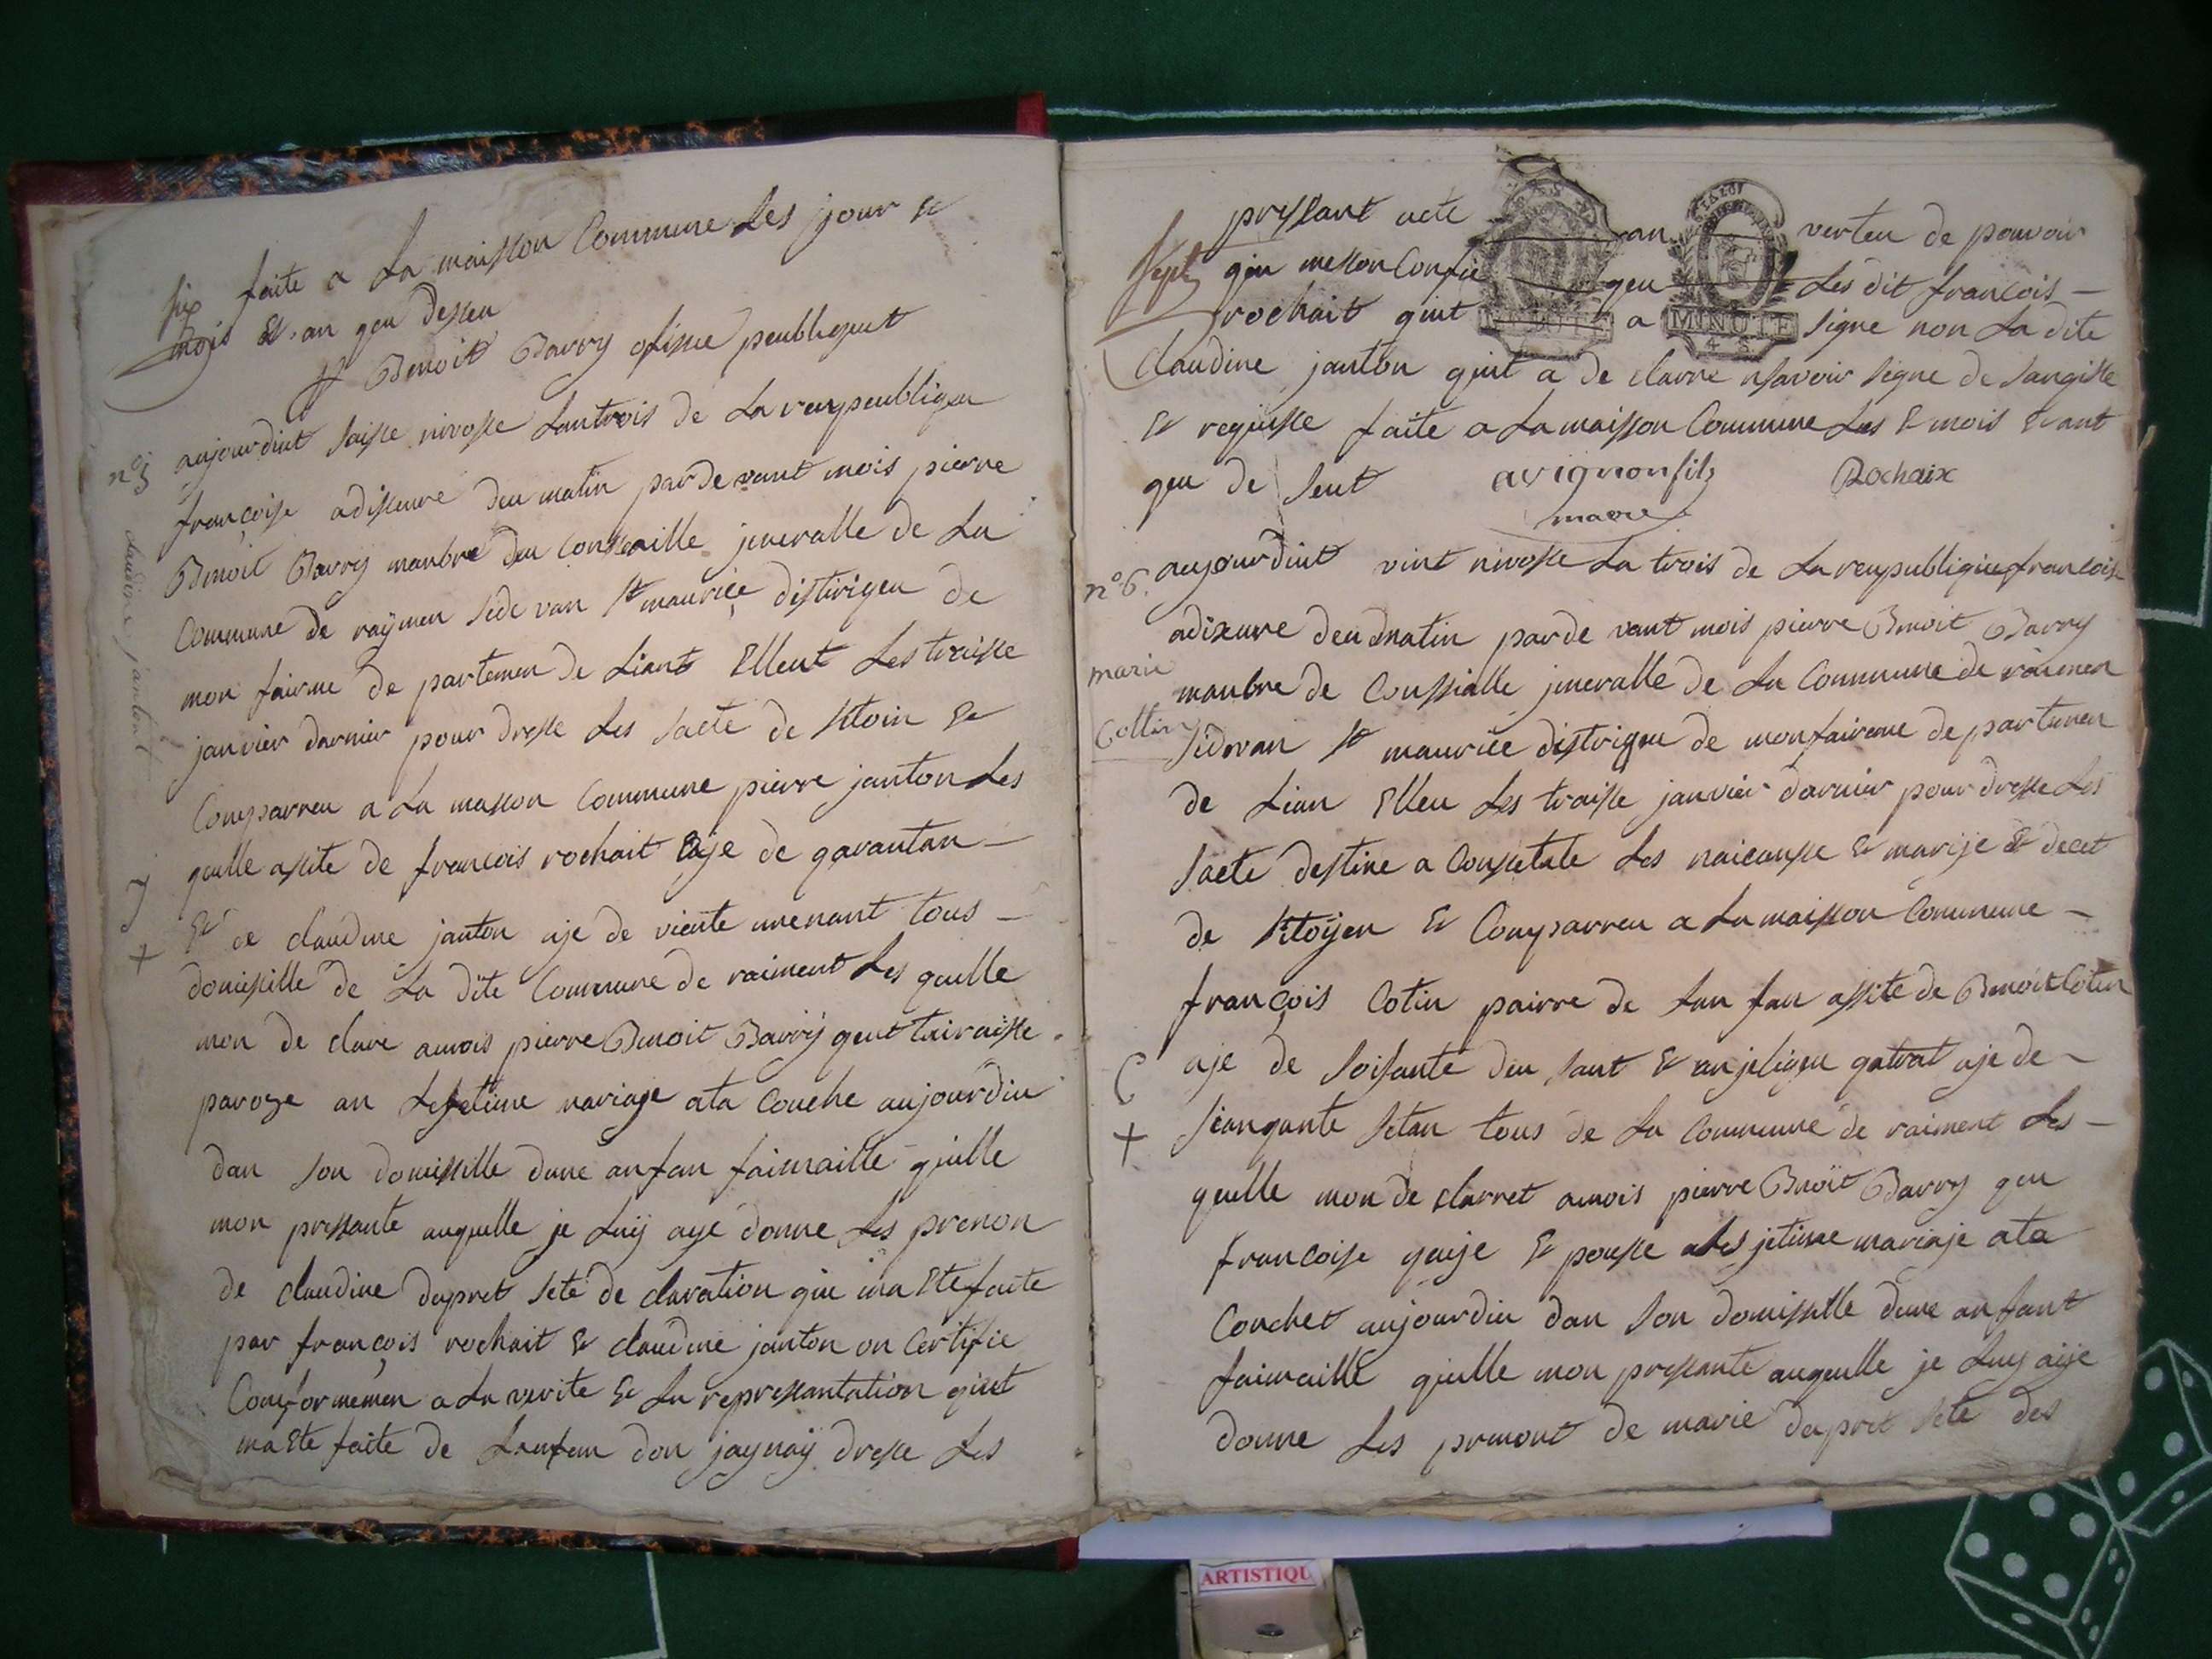 six faite a La maisson Commune Les jour &
mois & an que desseu
Benoit Barry ofissie peublequet
n° 5 aujourdiut saisse nivosse Lantrois de La reupeublique
françoise adisseure deu matin pardevant mois pierre
Benoit Barry manbre deu Consseaille jeneralle de La
Commune de raymen side van st maurice distirigeu de
mon fairme de partemen de Liant Elleut Les traisse
janvier darnier pour dresse Les sacte de sitoin &
Comparreu a La masson Commune pierre janton Les
quelle assite de francois rochait aje de qarantan
& de claudine janton aje de viente unenant tous
domissille de La dite Commune de raiment Les quelle
mon de clare amois pierre Benoit Barry
paroge an Lesetime mariage ata Couche aujourdiu
dan son domissille dune anfan faimaille quille
mon pressante auquelle je Luy aye donne Les prenon
de claudine dapret sete de claration que ma Ete faite
par françois rochait & claudine janton on Certifie
Conformemen a La verite & La repressantation qiut
ma Ete faite de Lanfan don jaynay dresse Les
claudine jantont
J
+
sept
pressant acte an verteu de pouvoir
qiu messon Confie qeu Les dit francois
rochait qiut a signe non La dite
Claudine janton qiut a de clarre nsavoir signe de sangisse
& requisse faite a La maisson Commune Les & mois & ant
qeu de seut avignon fils Rochaix
maire
n° 6. aujourdiut vint nivosse La trois de La reupublique francoise
adixeure deu matin parde vant mois pierre Benoit Barry
marie
manbre de Conssialle jmeralle de La Commune de raimen
Cottin
sidevan st maurice distrigeu de monfaireme de partemen
de Lian Elleu Les traisse janvier darnier pour dresse Les
sacte destine a Conssetate Les naicansse & marije & decet
de sitoyen & Comparreu a La maisson Commune
françois Cotin pairre de Lan fan assite de Benoit Cotin
aje de soisante deu sant & anjeliqeu gatrat aje de
C
+
seanqante setan tous de La Commune de raiment Les
quelle mon de clarret amois pierre Benoit Barry qeu
francoise quije & pousse a Les jetime mariaje ata
Couchet aujourdiu dan son domissille dune anfant
faimaille qiulle mon pressante auqeulle je Luy aije
donne Les premont de marie dapret sete des
MINUTE
ARTISTIQU